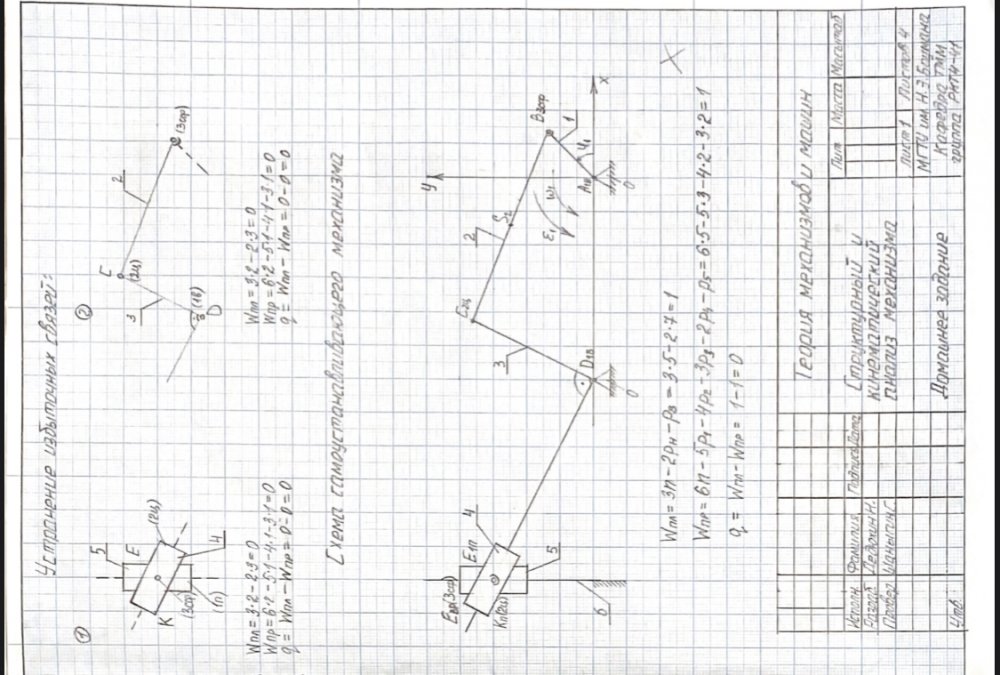 Устранение избыточных связей:
①
5
E
(2ц)
K
4
(3сф)
(1п)
Wпл = 3·2 - 2·3 = 0
Wпр = 6·2 - 5·1 - 4·1 - 3·1 = 0
q = Wпл - Wпр = 0 - 0 = 0
②
C
(2ц)
2
(3сф)
3
(1в)
D
Wпл = 3·2 - 2·3 = 0
Wпр = 6·2 - 5·1 - 4·1 - 3·1 = 0
q = Wпл - Wпр = 0 - 0 = 0
Схема самоустанавливающего механизма
Eвр(3сф)
E1п
4
Kп(2ц)
5
6
C2ц
3
D1в
0
2
S2
y
B3сф
1
φ1
ω1
ε1
A1в
0
x
Wпл = 3n - 2pн - pв = 3·5 - 2·7 = 1
Wпр = 6n - 5p1 - 4p2 - 3p3 - 2p4 - p5 = 6·5 - 5·3 - 4·2 - 3·2 = 1
q = Wпл - Wпр = 1 - 1 = 0
Теория механизмов и машин
Исполн Фамилия Подпись Дата
Разраб Дедюкин Н.
Провер
Утв
Структурный и
кинематический
анализ механизма
Домашнее задание
Лит Масса Масштаб
Лист 1 Листов 4
МГТУ им. Н.Э. Баумана
Кафедра ТММ
группа РКТ4-41